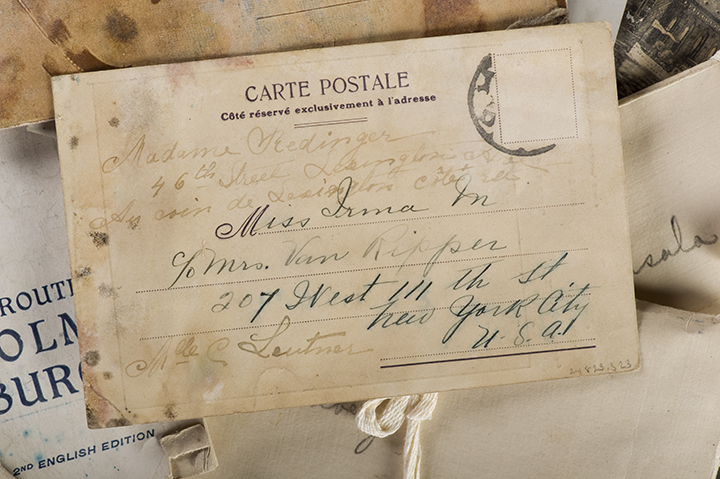 CARTE POSTALE
Côté réservé exclusivement à l'adresse
Madame Redinger
46th Street Lexington Av
Au coin de Lexington côté
Miss Irma M
c/o Mrs. Van Ripper
207 West 111 th St
New York City
U.S.A.
Mlle C Leutner
ROUT
OLM
BURG
2ND ENGLISH EDITION